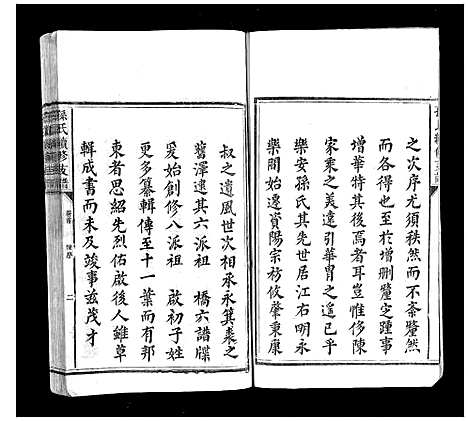 之次序尤須秩然而不紊釐然
而各得也至於增刪釐定踵事
增華特其後焉者耳豈惟侈陳
家乘之美遠引華冑之遥已乎
樂安孫氏其先世居江右明永
樂間始遷資陽宗祊攸肇秉康
叔之遺風世次相承永箕裘之
舊澤遠其六派祖 橋六譜牒
爰始創修八派祖 啟初子姓
更多纂輯傳至十一葉而有邦
東者思紹先烈佑啟後人雖草
輯成書而未及竣事茲茂才
孫氏續修支
二